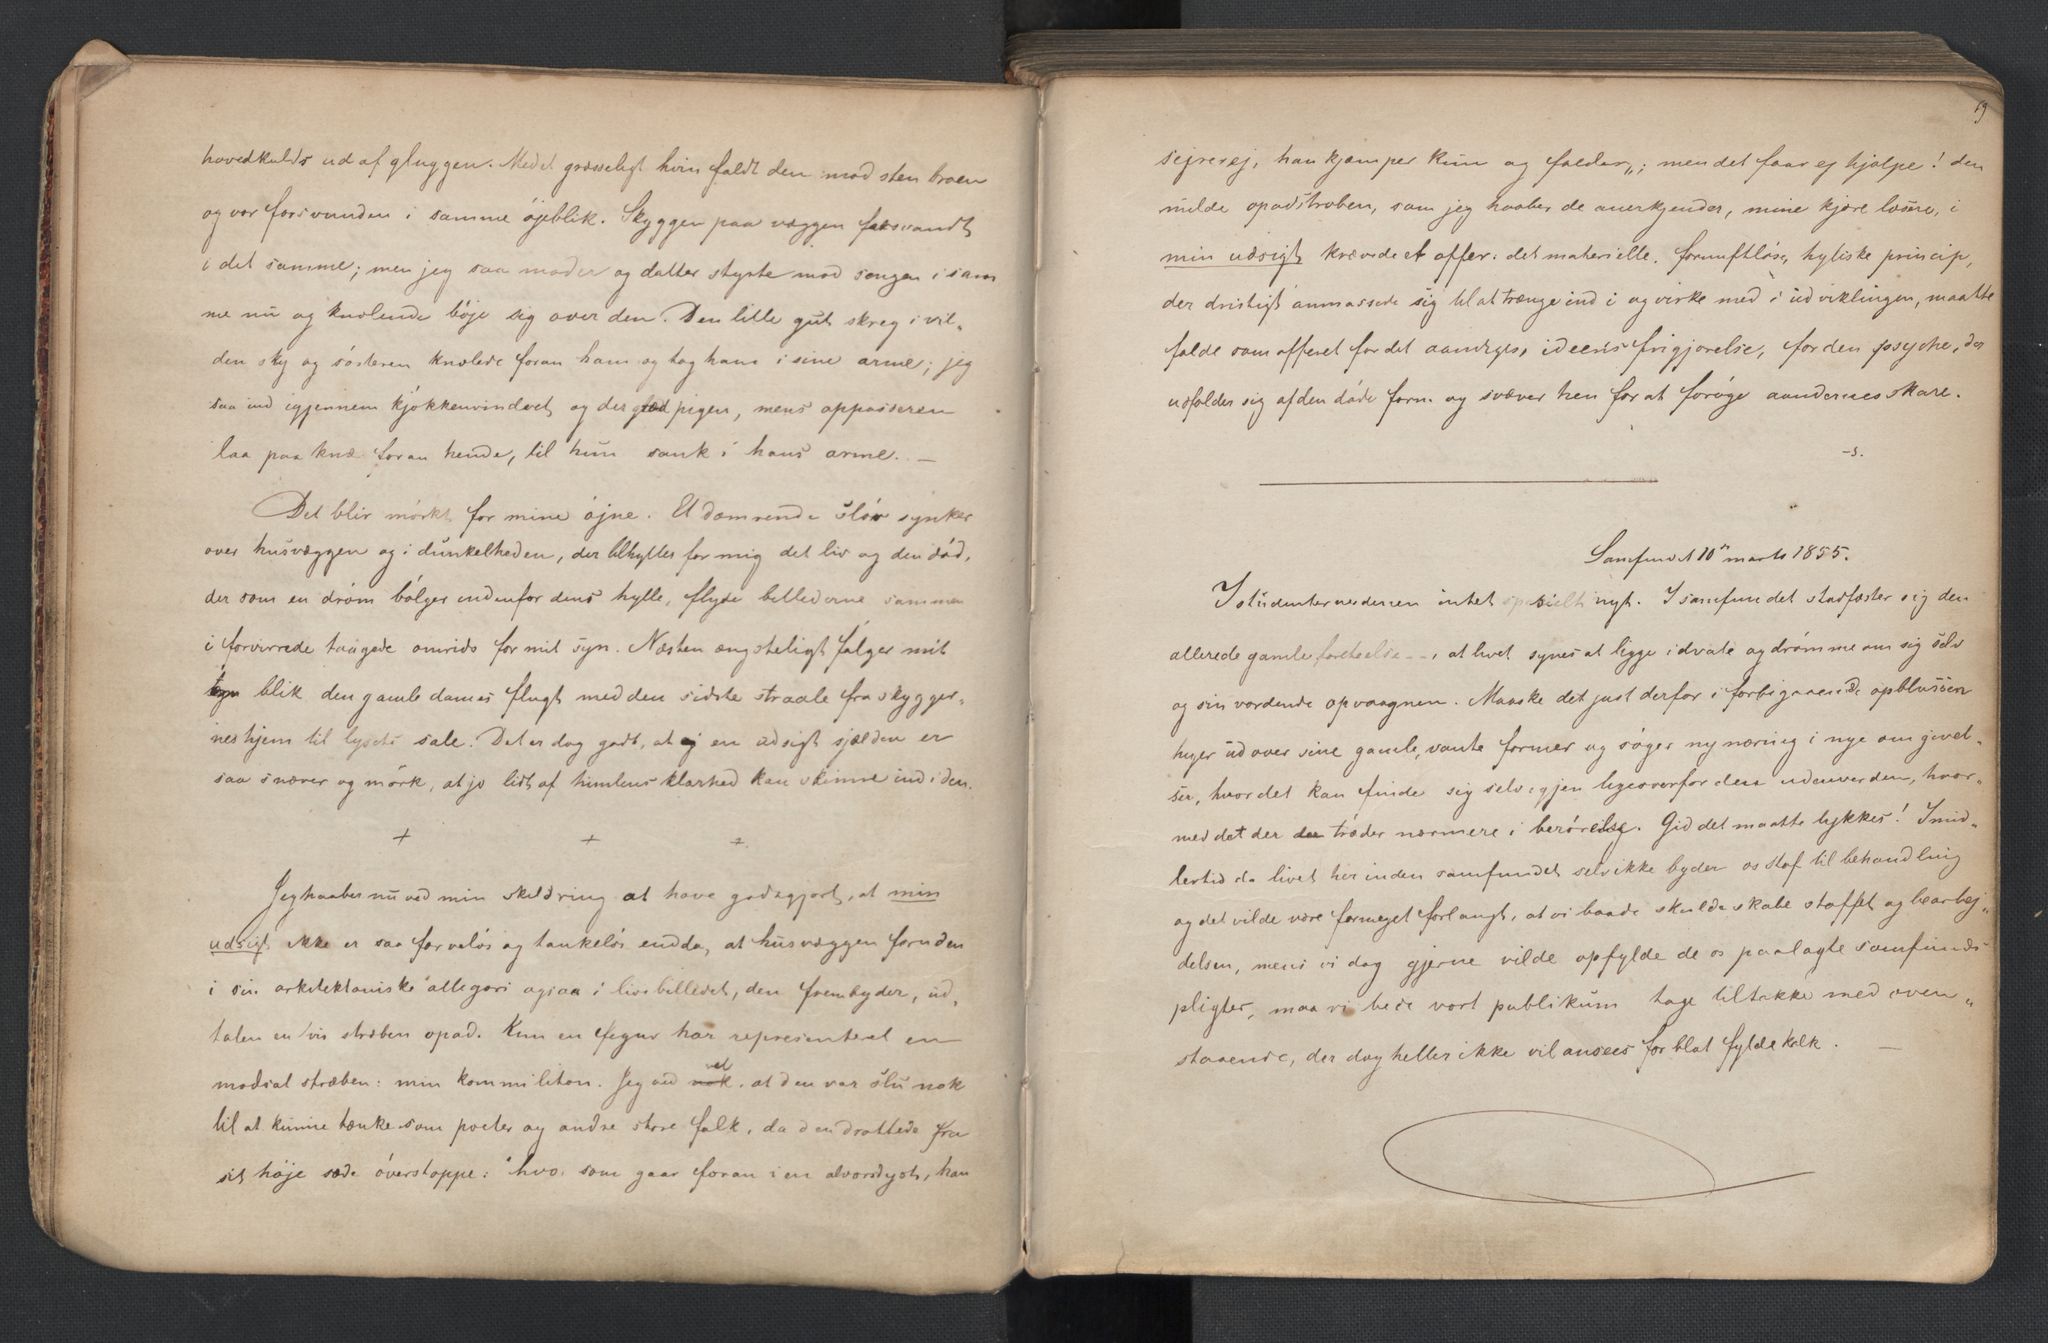 hovedkulds ud af gluggen. Med et græsseligt hvin faldt den mod stenbroen
og var forsvunden i samme øjeblik. Skyggen paa væggen forsvandt
i det samme; men jeg saa moder og datter styrte mod sengen i sam
me nu og knælende bøje sig over den. Den lille gut skreg i vil-
den sky og søsteren knælede foran ham og tog ham i sine arme; jeg
saa ind igjennem kjøkkenvinduet og der stod pigen, mens oppasseren
laa paa knæ foran hende, til hun sank i hans arme. —
Det blir mørkt for mine øjne. Et dæmrende slør synker
over husvæggen og i dunkelheden, der tilhyller for mig det liv og den død,
der som en drøm bølger indenfor dens hylle, flyde billederne sammen
i forvirrede taagede omrids for mit syn. Næsten ængsteligt følger mit
blik den gamle dames flugt med den sidste straale fra skygger-
nes hjem til lysets sale. Det er dog godt, at ej en udsigt sjælden er
saa snæver og mørk, at jo lidt af himlens klarhed kan skinne ind i den.
+ + +
Jeg haaber nu ved min skildring at have godtgjort, at min
udsigt ikke er saa farveløs og tankeløs endda, at husvæggen foruden
i sin arkitektoniske allegori ogsaa i livsbilledet, den frembyder, ud-
talen en vis stræben opad. Kun en figur har repræsenteret en
modsat stræben: min kommiliton. Jeg ved vel, at den var slu nok
til at kunne tænke som poeter og andre store folk, da den drattede fra
sit høje sæde överst oppe: "hvo, som gaar foran i en alvorsdyst, han
19
sejrer ej, han kjæmper kun og falder"; men det faar ej hjælpe! den
milde opadstræben, som jeg haaber de anerkjender, mine kjære læsere, i
min udsigt krævede et offer: det materielle, fornuftløse, hyliske princip,
der dristigt anmassede sig til at trænge ind i og virke med i udviklingen, maatte
falde som offeret for det aandiges, ideens frigjørelse, for den psyche, der
udfolder sig af den døde form og svæver hen for at forøge aandernes skare.
-s.
Samfundet 10de marts 1855.
I studenterverdenen intet specielt nyt. I samfundet stadfæster sig den
allerede gamle foreteelse --, at livet synes at ligge i dvale og drømme om sig selv
og sin vordende opvaagnen. Maaske det just derfor i forbigaaende opblussen
higer ud over sine gamle, vante former og søger ny næring i nye omgivel-
ser, hvor det kan finde sig selv igjen ligeoverfor den udenverden, hvor-
med det der træder nærmere i berørelse. Gid det maatte lykkes! Imid-
lertid da livet her inden samfundet selv ikke byder os stof til behandling
og det vilde være formeget forlangt, at vi baade skulde skabe stoffet og bearbej-
delsen, mens vi dog gjerne vilde opfylde de os paalagte samfunds
pligter, maa vi bede vort publikum tage tiltakke med oven-
staaende, der dog heller ikke vil ansees for blot fyldekalk. —